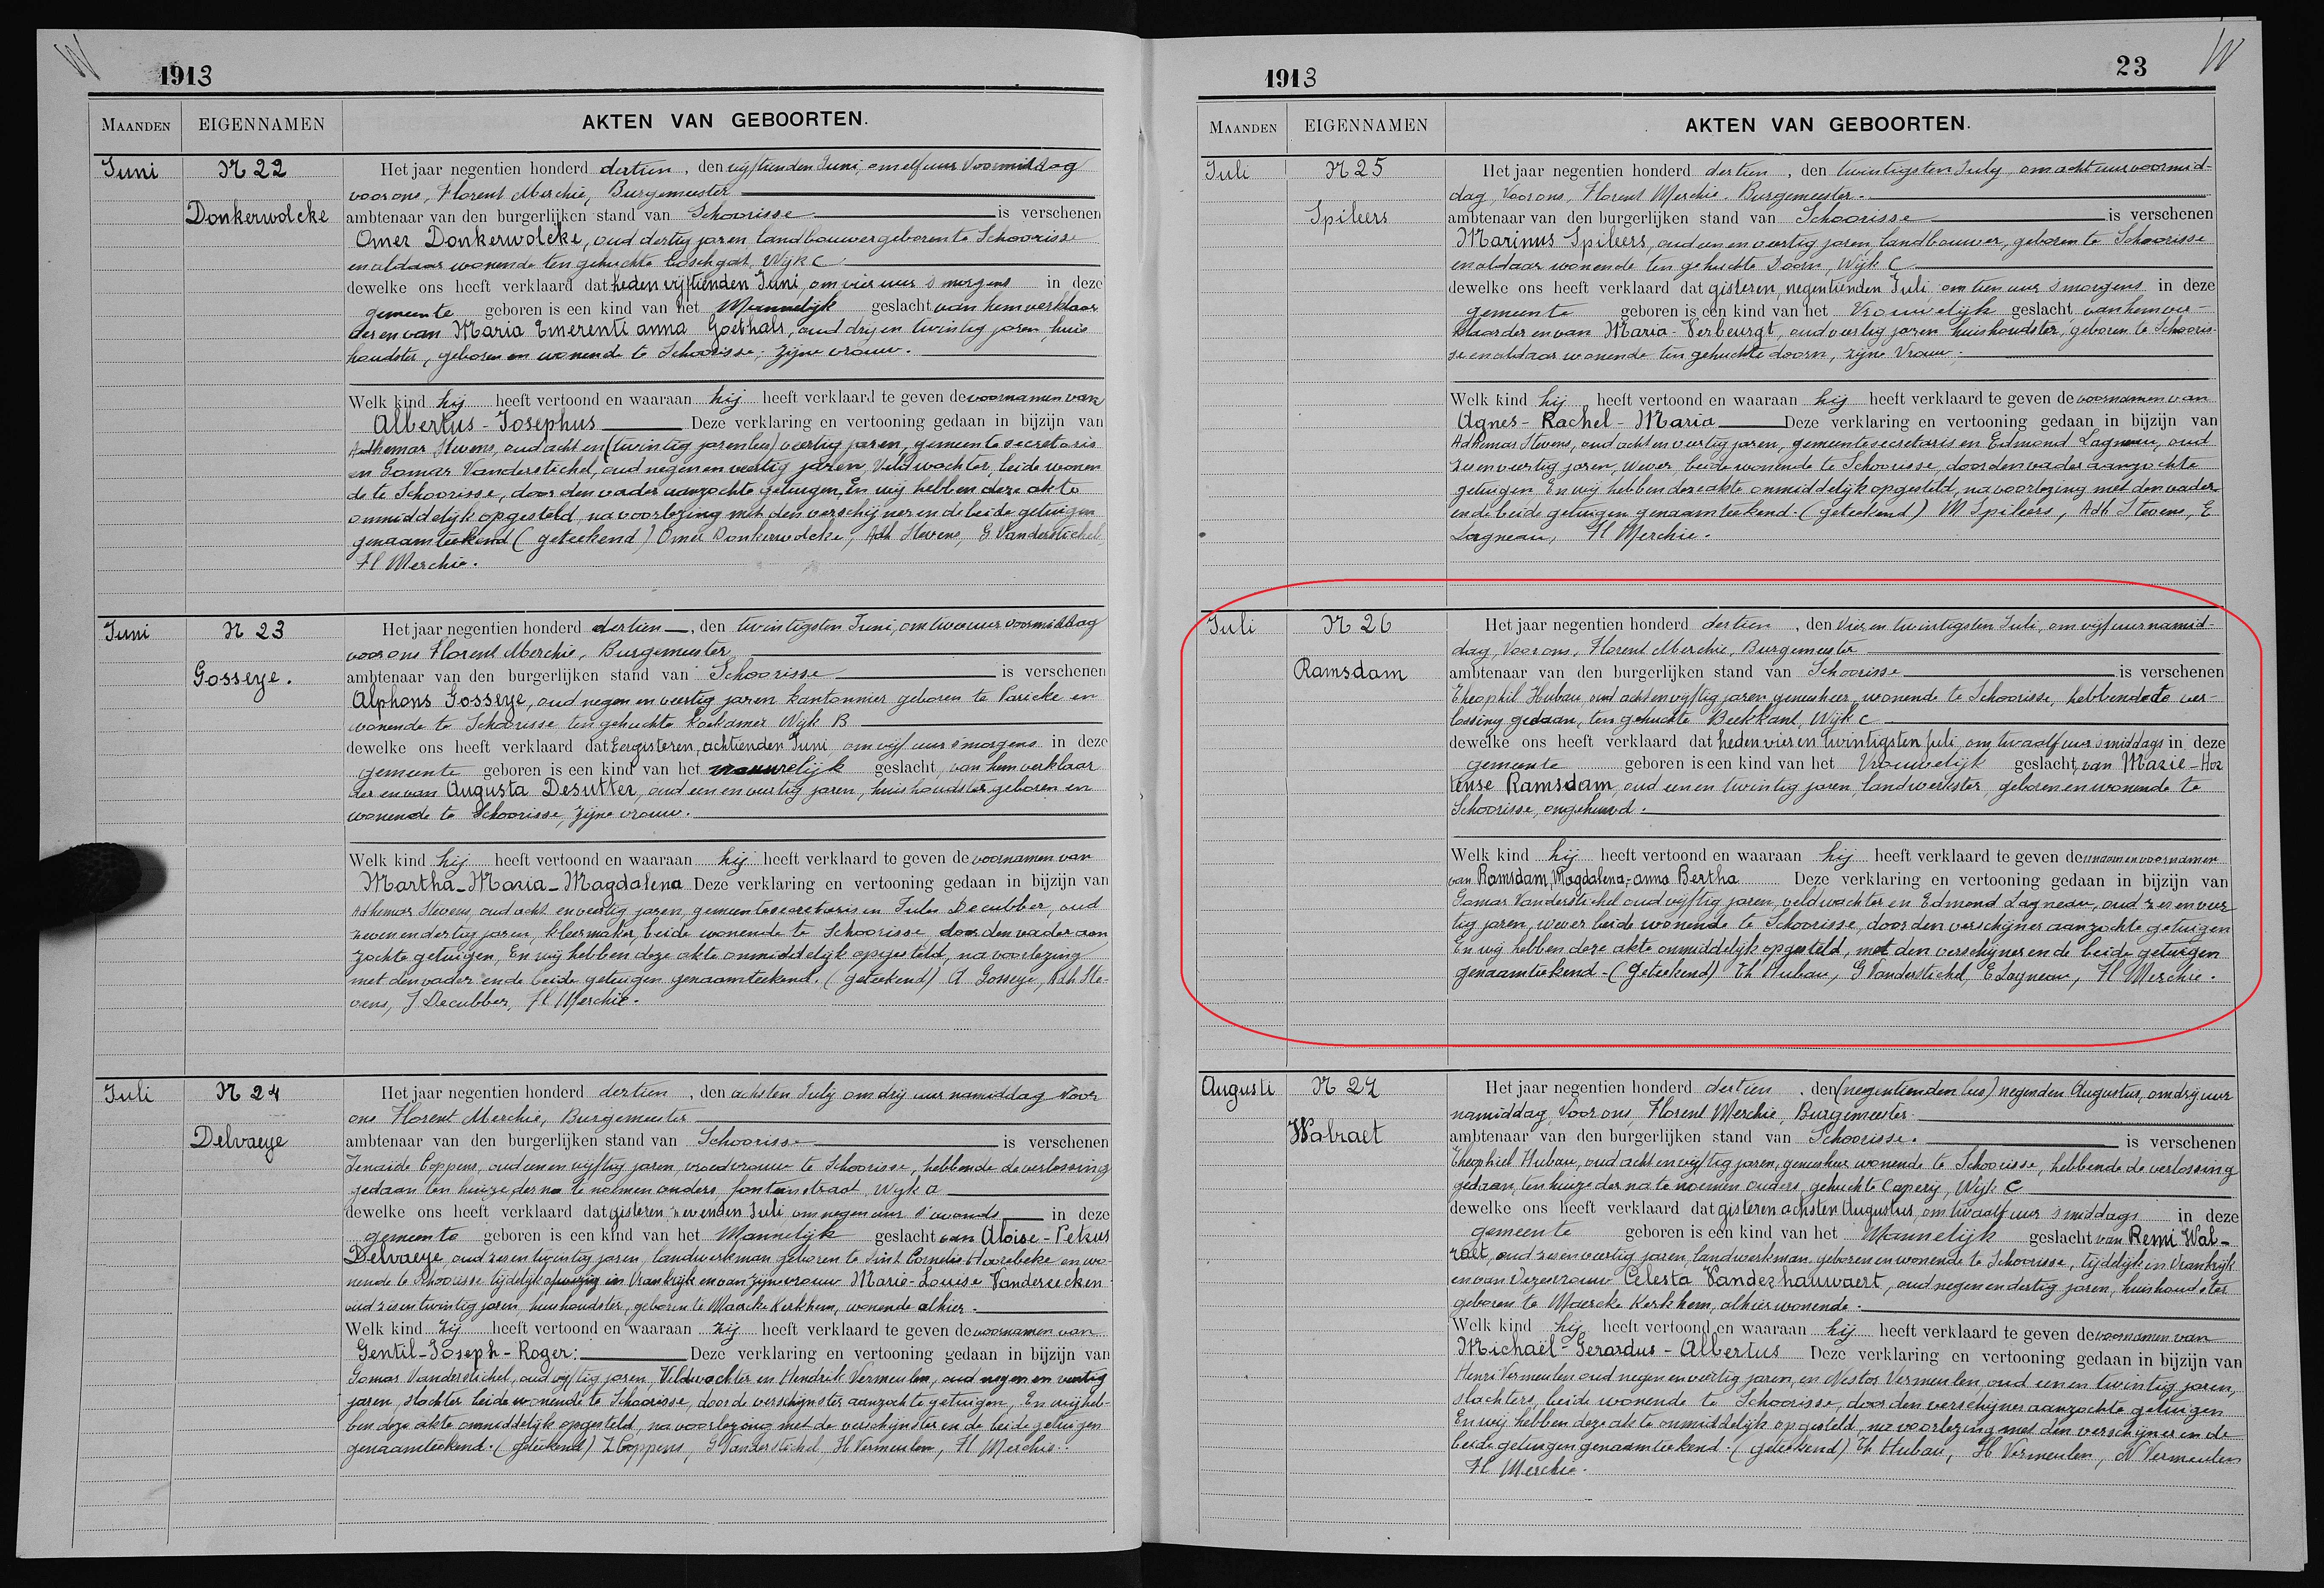 1913
MAANDEN EIGENNAMEN AKTEN VAN GEBOORTEN.
Juni N 22 Het jaar negentien honderd dertien, den vijftienden Juni, om elf uur Voormiddag
voor ons, Florent Merchie, Burgemeester
Donkerwolcke ambtenaar van den burgerlijken stand van Schoorisse is verschenen
Omer Donkerwolcke, oud dertig jaren landbouwer geboren te Schoorisse
en aldaar wonende ten gehuchte Boschgat, Wijk C
dewelke ons heeft verklaard dat heden vijftienden Juni, om vier uur s'morgens in deze
gemeente geboren is een kind van het Mannelijk geslacht van hem verklaar
der en van Maria Emerentianna Goethals, oud drij en twintig jaren, huis
houdster, geboren en wonende te Schoorisse; zijne vrouw.
Welk kind hij heeft vertoond en waaraan hij heeft verklaard te geven de voornamen van
Albertus-Josephus Deze verklaring en vertooning gedaan in bijzijn van
Adhemar Stevens, oud acht en (twintig jaren lees) veertig jaren, gemeentesecretaris
en Gomar Vanderstichel, oud negen en veertig jaren, Veldwachter, beide wonen
de te Schoorisse, door den vader aanzochte getuigen, En wij hebben deze akte
onmiddelijk opgesteld, na voorlezing met den verschijner en de beide getuigen
genaamteekend (geteekend) Omer Donkerwolcke, Adh Stevens, G. Vanderstichel,
Fl Merchie.
Juni N 23 Het jaar negentien honderd dertien, den twintigsten Juni, om twee uur voormiddag
voor ons Florent Merchie, Burgemeester
Gosseye. ambtenaar van den burgerlijken stand van Schoorisse is verschenen
Alphons Gosseye, oud negen en veertig jaren kantonnier geboren te Paricke en
wonende te Schoorisse ten gehuchte Koekamer Wijk B
dewelke ons heeft verklaard dat Eergisteren, achtienden Juni om vijf uur s'morgens in deze
gemeente geboren is een kind van het vrouwelijk geslacht, van hem verklaar
der en van Augusta Desutter, oud een en veertig jaren, huishoudster geboren en
wonende te Schoorisse, zijne vrouw.
Welk kind hij heeft vertoond en waaraan hij heeft verklaard te geven de voornamen van
Martha-Maria-Magdalena Deze verklaring en vertooning gedaan in bijzijn van
Adhemar Stevens, oud acht en veertig jaren, gemeentesecretaris en Jules Decubber, oud
zeven en dertig jaren, kleermaker, beide wonende te Schoorisse door den vader aan
zochte getuigen, En wij hebben deze akte onmiddelijk opgesteld, na voorlezing
met den vader en de beide getuigen genaamteekend. (geteekend) A Gosseye, Adh Ste-
vens, J Decubber, Fl Merchie.
Juli N 24 Het jaar negentien honderd dertien, den achsten July om drij uur namiddag Voor
ons Florent Merchie, Burgemeester
Delvaeye ambtenaar van den burgerlijken stand van Schoorisse is verschenen
Zenaïde Coppens, oud een en vijftig jaren, vroedvrouw te Schoorisse, hebbende de verlossing
gedaan ten huize der na te noemen ouders, fonteinstraat, Wijk A
dewelke ons heeft verklaard dat gisteren, zevenden Juli, om negen uur s'avonds in deze
gemeente geboren is een kind van het Mannelijk geslacht van Aloise-Petrus
Delvaeye, oud zes en twintig jaren, landwerkman geboren te Sint Cornelis Hoorebeke en wo-
nende te Schoorisse tijdelijk afwezig in Vrankrijk en van zijne vrouw Marie-Louise Vandereecken
oud zes en twintig jaren, huishoudster, geboren te Maercke Kerkhem, wonende alhier.
Welk kind zij heeft vertoond en waaraan zij heeft verklaard te geven de voornamen van
Gentil-Joseph-Roger: Deze verklaring en vertooning gedaan in bijzijn van
Gomar Vanderstichel, oud vijftig jaren, Veldwachter en Hendrik Vermeulen, oud negen en veertig
jaren, slachter beide wonende te Schoorisse, door de verschijnster aanzochte getuigen, En wij heb-
ben deze akte onmiddelijk opgesteld, na voorlezing met de verschijnster en de beide getuigen
genaamteekend. (geteekend) Z Coppens, G Vanderstichel, H Vermeulen, Fl Merchie.
1913 23
MAANDEN EIGENNAMEN AKTEN VAN GEBOORTEN.
Juli N 25 Het jaar negentien honderd dertien, den twintigsten July om acht uur voormid-
dag, Voor ons, Florent Merchie, Burgemeester.
Spileers ambtenaar van den burgerlijken stand van Schoorisse is verschenen
Marinus Spileers, oud een en veertig jaren, landbouwer, geboren te Schoorisse
en aldaar wonende ten gehuchte Doorn, Wijk C
dewelke ons heeft verklaard dat gisteren, negentienden Juli om tien uur s'morgens in deze
gemeente geboren is een kind van het Vrouwelijk geslacht van hem ver-
klaarder en van Maria-Verbeurgt, oud veertig jaren huishoudster, geboren te Schooris-
se en aldaar wonende ten gehuchte doorn, zijne Vrouw.
Welk kind hij heeft vertoond en waaraan hij heeft verklaard te geven de voornamen van
Agnes-Rachel-Maria Deze verklaring en vertooning gedaan in bijzijn van
Adhemar Stevens, oud acht en veertig jaren, gemeentesecretaris en Edmond Lagneau, oud
zes en veertig jaren, wever, beide wonende te Schoorisse, door den vader aanzochte
getuigen En wij hebben deze akte onmiddelijk opgesteld, na voorlezing met den vader
en de beide getuigen genaamteekend. (geteekend) M Spileers, Adh Stevens, E
Lagneau, Fl Merchie.
Juli N 26 Het jaar negentien honderd dertien, den Vier en twintigsten Juli, om vijf uur namid-
dag, Voor ons, Florent Merchie, Burgemeester
Ramsdam ambtenaar van den burgerlijken stand van Schoorisse is verschenen
Theophil Hubau, oud acht en vijftig jaren, geneesheer, wonende te Schoorisse, hebbende de ver-
lossing gedaan, ten gehuchte Beekkant, Wijk C
dewelke ons heeft verklaard dat heden vier en twintigsten Juli, om twaalf uur s'middags in deze
gemeente geboren is een kind van het Vrouwelijk geslacht, van Marie-Hor
tense Ramsdam, oud een en twintig jaren, landwerkster, geboren en wonende te
Schoorisse, ongehuwd.
Welk kind hij heeft vertoond en waaraan hij heeft verklaard te geven den naam en voornamen
van Ramsdam, Magdalena-anna Bertha Deze verklaring en vertooning gedaan in bijzijn van
Gomar Vanderstichel oud vijftig jaren, veldwachter en Edmond Lagneau, oud zes en veer
tig jaren, wever beide wonende te Schoorisse, door den verschijner aanzochte getuigen
En wij hebben deze akte onmiddelijk opgesteld, met den verschijner en de beide getuigen
genaamteekend. (Geteekend) Th Hubau, G Vanderstichel, E Lagneau, Fl Merchie.
Augusti N 27 Het jaar negentien honderd dertien, den (negentienden lees) negenden Augustus, om drij uur
namiddag, Voor ons, Florent Merchie, Burgemeester
Walraet ambtenaar van den burgerlijken stand van Schoorisse. is verschenen
Theophiel Hubau, oud acht en vijftig jaren, geneesheer, wonende te Schoorisse, hebbende de verlossing
gedaan, ten huize der na te noemen ouders, gehuchte Caperij, Wijk C
dewelke ons heeft verklaard dat gisteren achsten Augustus, om twaalf uur s'middags in deze
gemeente geboren is een kind van het Mannelijk geslacht van Remi Wal-
raet, oud zes en veertig jaren, landwerkman, geboren en wonende te Schoorisse, tijdelijk in Vrankrijk
en van dezes vrouw Celesta Vanderhauwaert, oud negen en dertig jaren, huishoudster
geboren te Maercke Kerkhem, alhier wonende.
Welk kind hij heeft vertoond en waaraan hij heeft verklaard te geven de voornamen van
Michaël-Gerardus-Albertus Deze verklaring en vertooning gedaan in bijzijn van
Henri Vermeulen oud negen en veertig jaren, en Nestor Vermeulen oud een en twintig jaren,
slachters, beide wonende te Schoorisse, door den verschijner aanzochte getuigen
En wij hebben deze akte onmiddelijk opgesteld, na voorlezing met den verschijner en de
beide getuigen genaamteekend. (geteekend) Th Hubau, H Vermeulen, N Vermeulen
Fl Merchie.